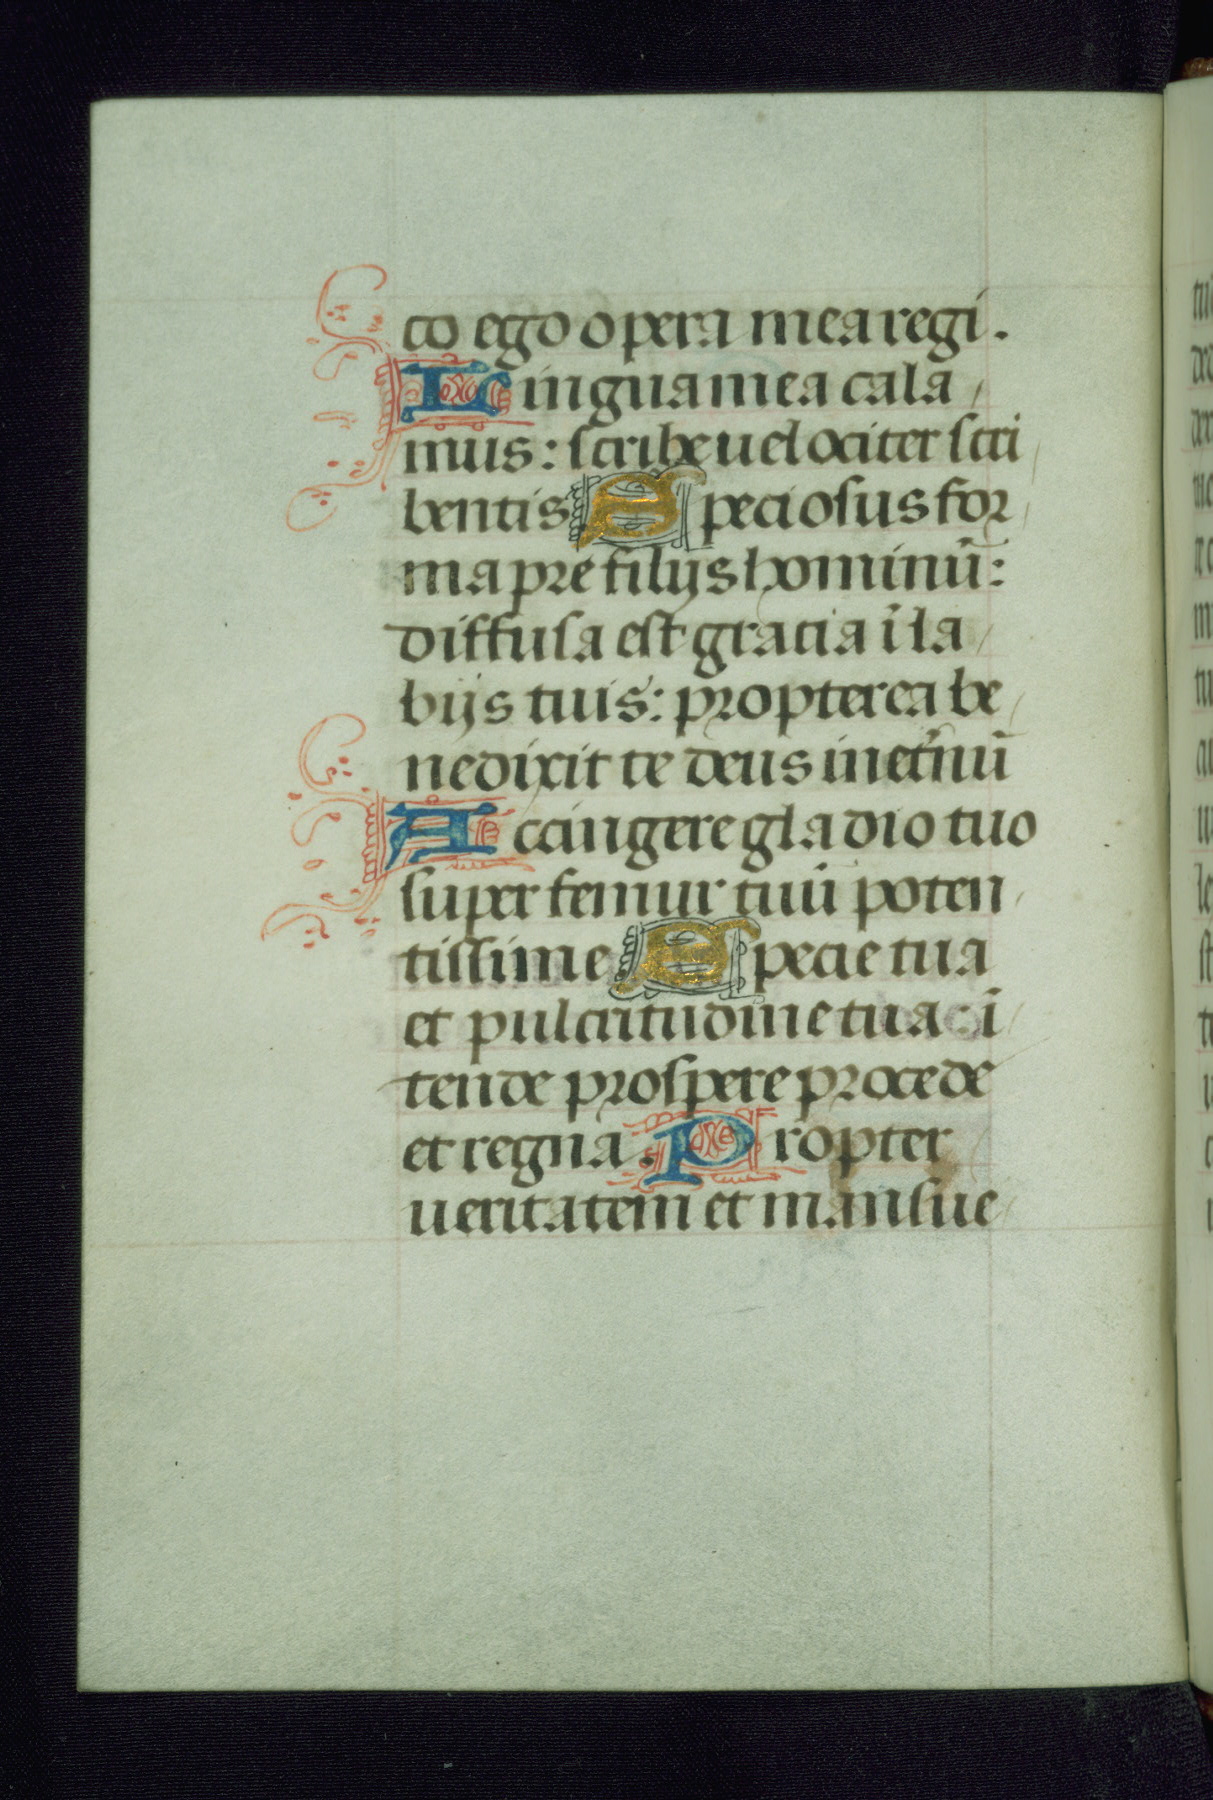 co ego opera mea regi.
Lingua mea cala
mus: scribe uelociter scri
bentis Speciosus for
ma pre filijs hominū:
diffusa est gracia ī la
bijs tuis: propterea be
nedixit te deus in et̄nū
Accingere gladio tuo
super femur tuū poten
tissime Specie tua
et pulcritudine tua: ī
tende prospere procede
et regna. Propter
ueritatem et mansue